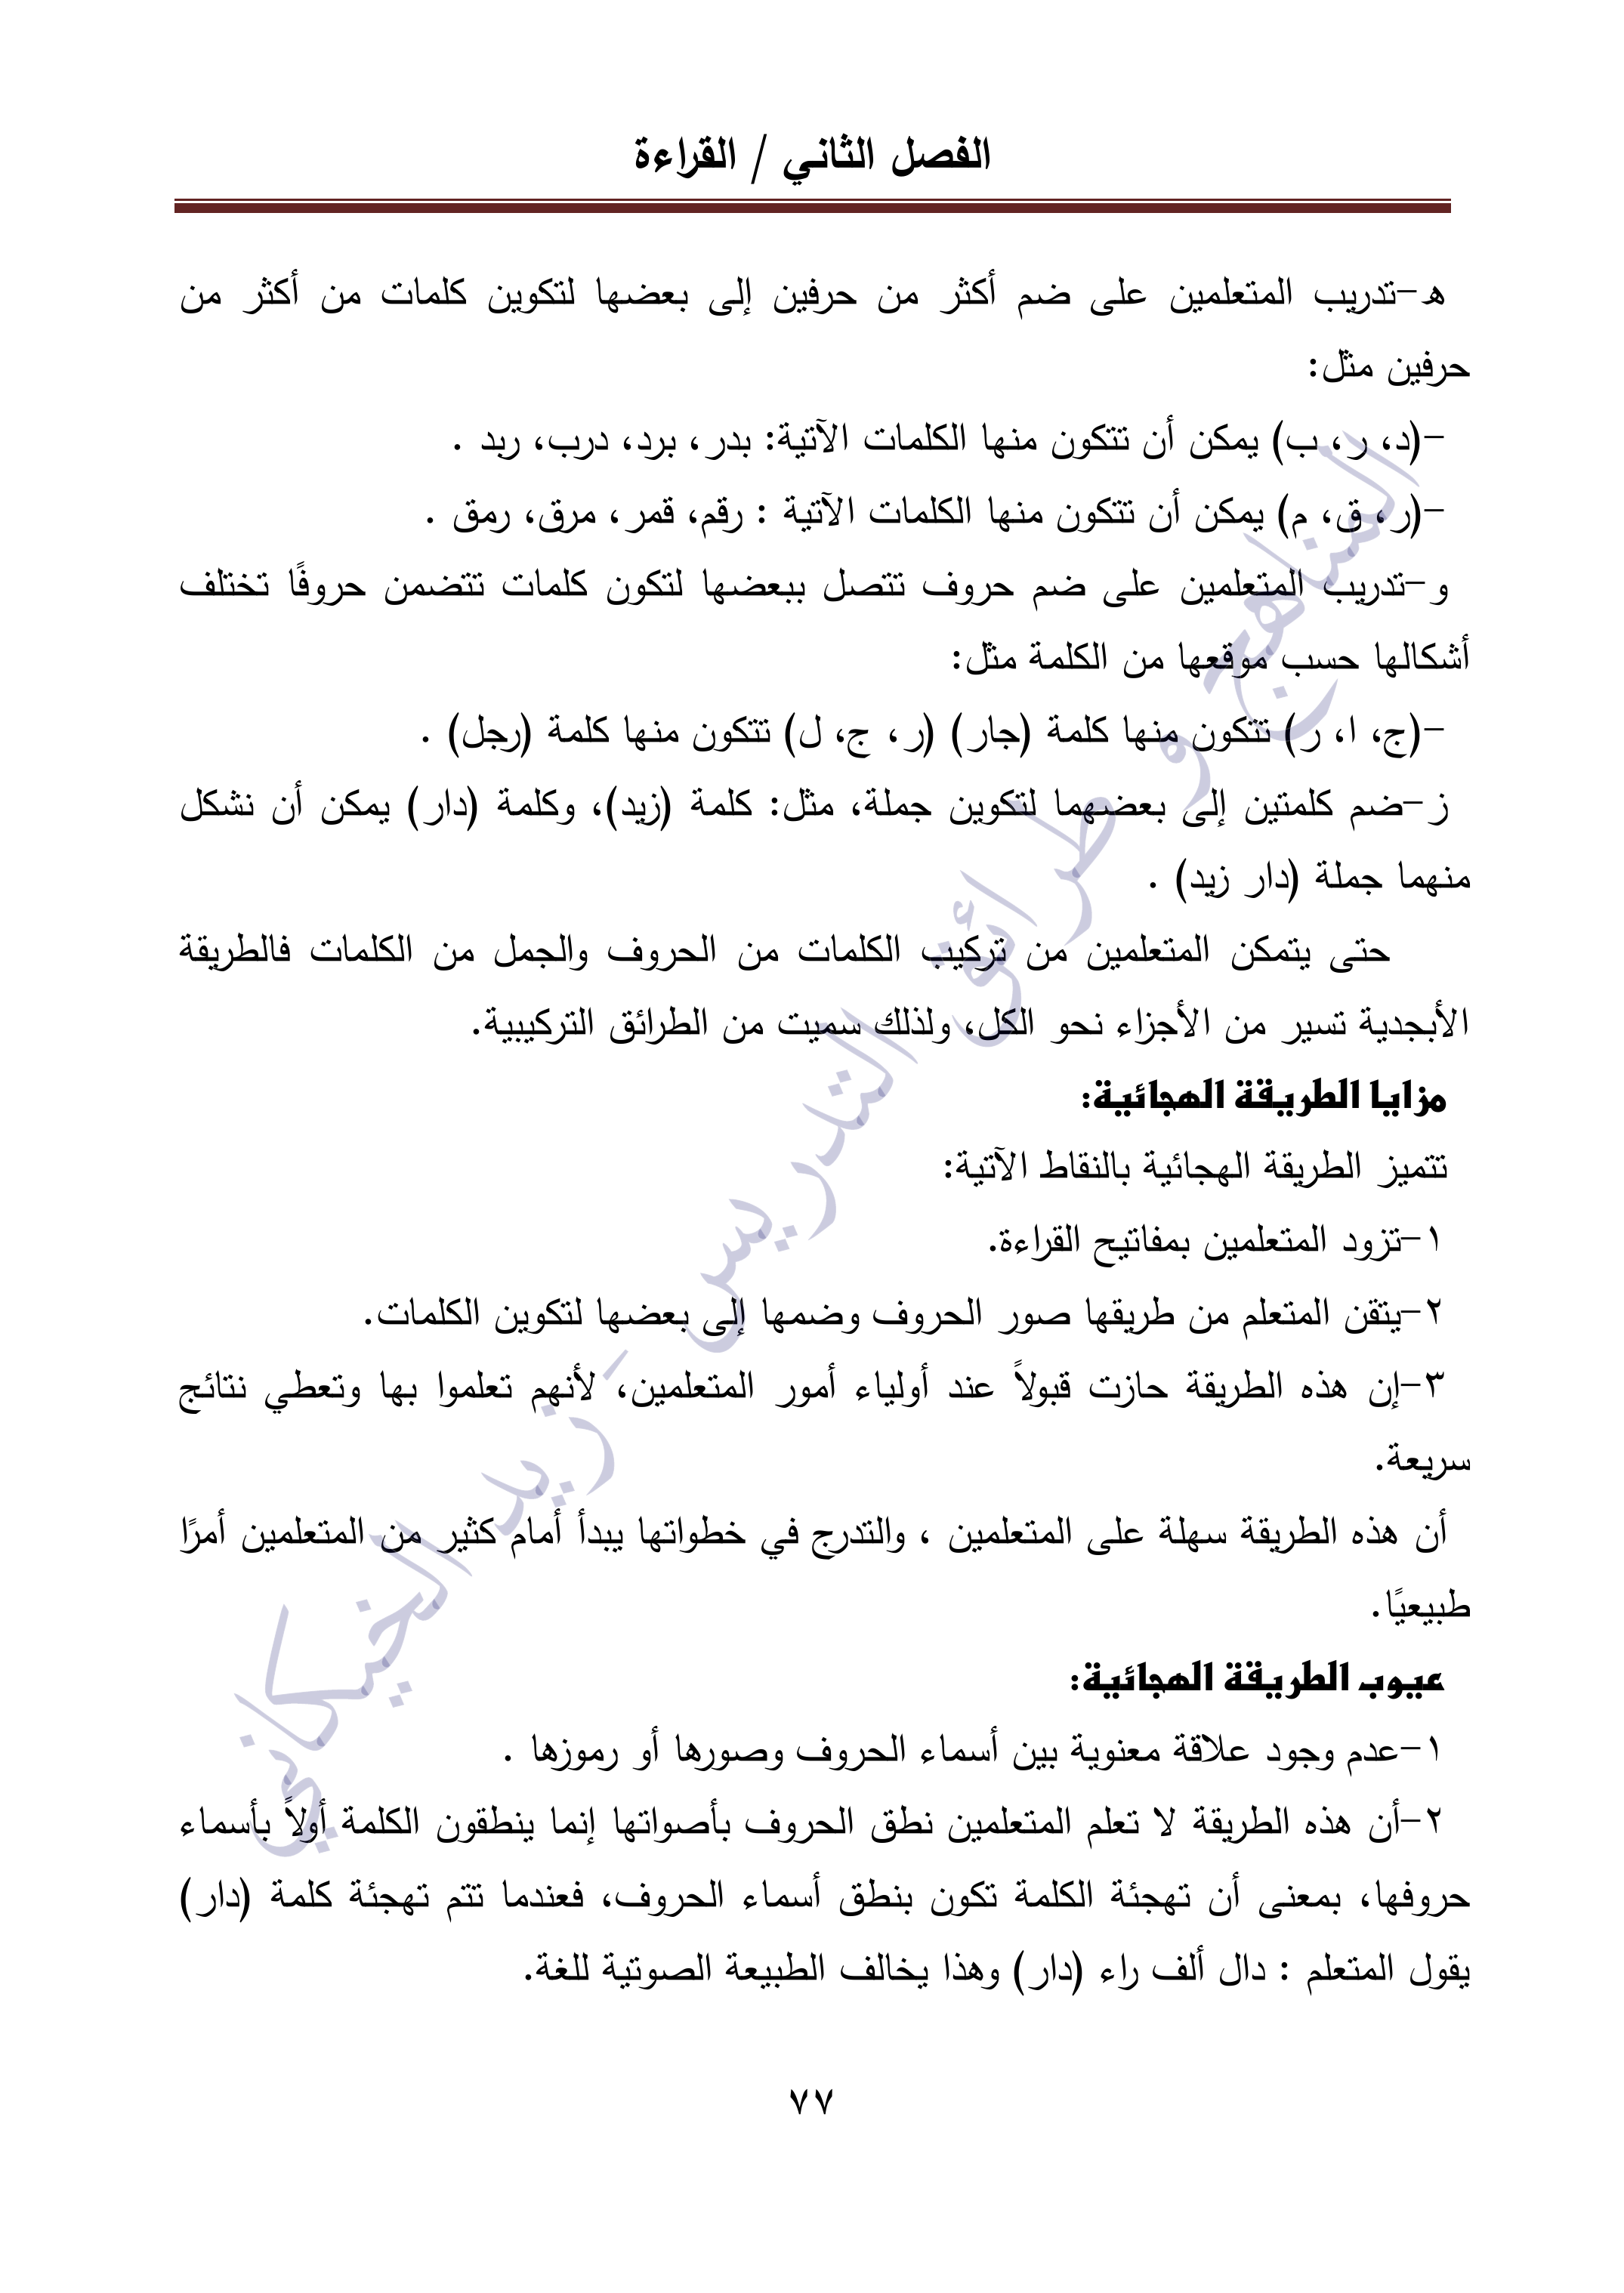 الفصل الثاني / القراءة
هـ-تدريب المتعلمين على ضم أكثر من حرفين إلى بعضها لتكوين كلمات من أكثر من
حرفين مثل:
-(د، ر، ب) يمكن أن تتكون منها الكلمات الآتية: بدر، برد، درب، ربد .
-(ر، ق، م) يمكن أن تتكون منها الكلمات الآتية : رقم، قمر، مرق، رمق .
و-تدريب المتعلمين على ضم حروف تتصل ببعضها لتكون كلمات تتضمن حروفًا تختلف
أشكالها حسب موقعها من الكلمة مثل:
-(ج، ا، ر) تتكون منها كلمة (جار) (ر، ج، ل) تتكون منها كلمة (رجل) .
ز-ضم كلمتين إلى بعضهما لتكوين جملة، مثل: كلمة (زيد)، وكلمة (دار) يمكن أن نشكل
منهما جملة (دار زيد) .
حتى يتمكن المتعلمين من تركيب الكلمات من الحروف والجمل من الكلمات فالطريقة
الأبجدية تسير من الأجزاء نحو الكل، ولذلك سميت من الطرائق التركيبية.
مزايا الطريقة الهجائية:
تتميز الطريقة الهجائية بالنقاط الآتية:
١-تزود المتعلمين بمفاتيح القراءة.
٢-يتقن المتعلم من طريقها صور الحروف وضمها إلى بعضها لتكوين الكلمات.
٣-إن هذه الطريقة حازت قبولاً عند أولياء أمور المتعلمين، لأنهم تعلموا بها وتعطي نتائج
سريعة.
أن هذه الطريقة سهلة على المتعلمين ، والتدرج في خطواتها يبدأ أمام كثير من المتعلمين أمرًا
طبيعيًا.
عيوب الطريقة الهجائية:
١-عدم وجود علاقة معنوية بين أسماء الحروف وصورها أو رموزها .
٢-أن هذه الطريقة لا تعلم المتعلمين نطق الحروف بأصواتها إنما ينطقون الكلمة أولاً بأسماء
حروفها، بمعنى أن تهجئة الكلمة تكون بنطق أسماء الحروف، فعندما تتم تهجئة كلمة (دار)
يقول المتعلم : دال ألف راء (دار) وهذا يخالف الطبيعة الصوتية للغة.
٧٧
المناهج و طرائق التدريس - زيد الخيكاني